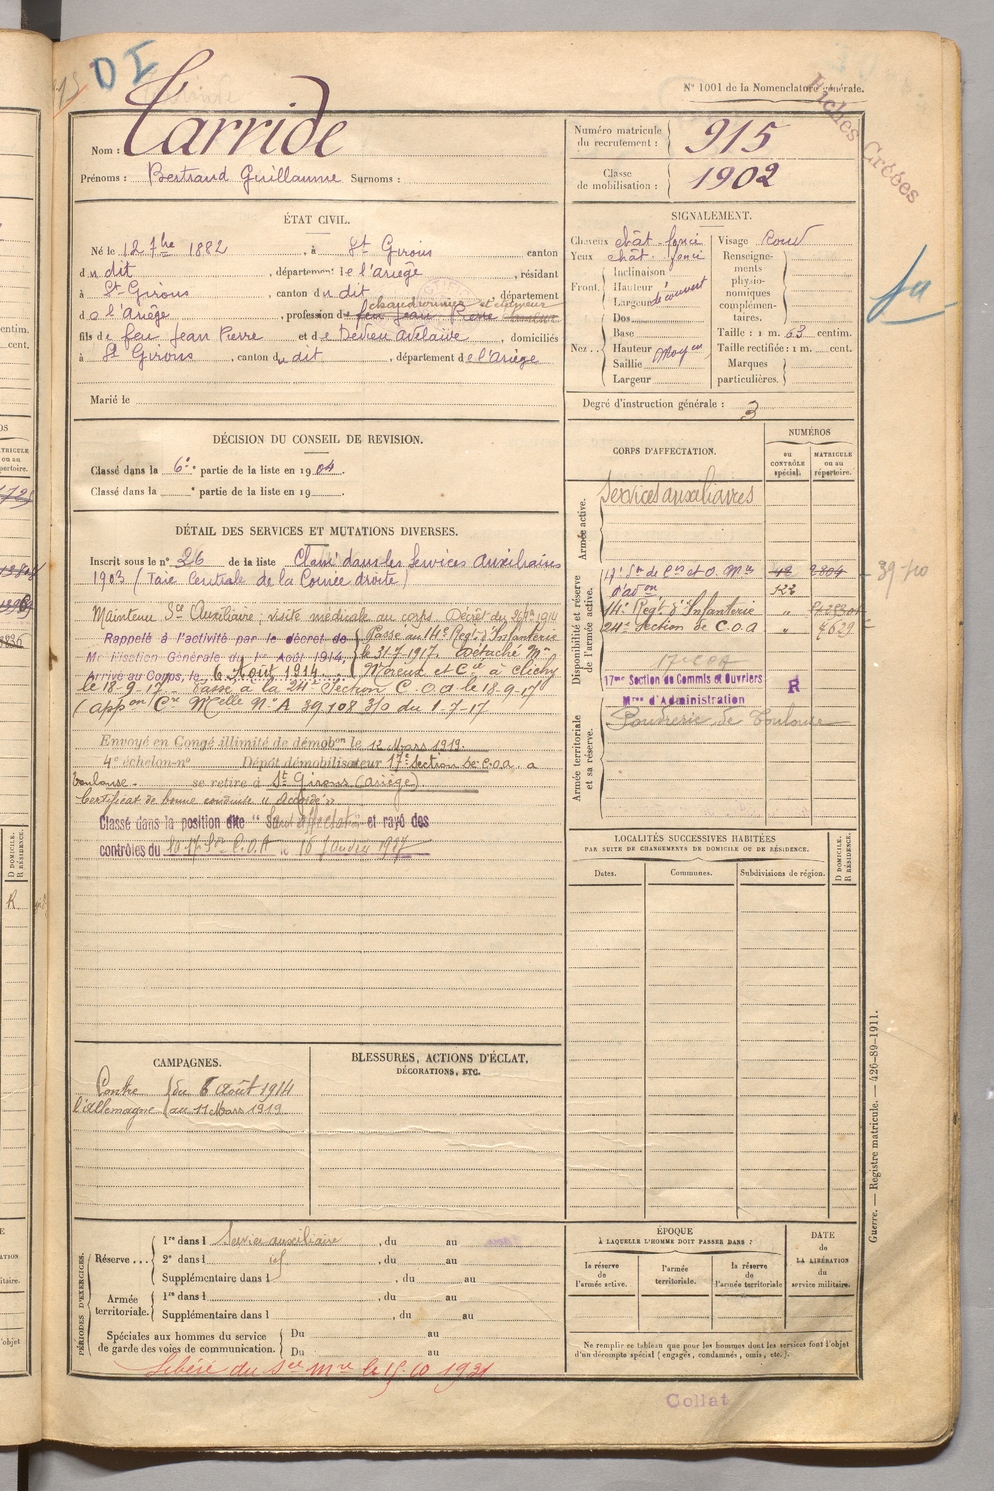 DI
N° 1001 de la Nomenclature générale.
Fiches Créées
Nom : Tarride
Prénoms : Bertrand Guillaume Surnoms :
Numéro matricule du recrutement : 915
Classe de mobilisation : 1902
ÉTAT CIVIL.
Né le 12 7bre 1882, à St Girons canton
du dit, département de l'Ariège, résidant
à St Girons, canton du dit, département
de l'Ariège, profession de chaudronnier et étameur
feu Jean Pierre
fils de feu Jean Pierre et de Dedieu Adélaïde, domiciliés
à St Girons, canton du dit, département de l'Ariège
Marié le
SIGNALEMENT.
Cheveux chât. foncé
Yeux chât. foncé
Front. Inclinaison
Hauteur
Largeur découvert
Nez. Dos
Base
Hauteur
Saillie moyen
Largeur
Visage Rond
Renseignements physionomiques complémentaires.
Taille : 1 m. 63 centim.
Taille rectifiée : 1 m. cent.
Marques particulières.
Degré d'instruction générale : 3
DÉCISION DU CONSEIL DE REVISION.
Classé dans la 6e partie de la liste en 1904.
Classé dans la e partie de la liste en 19
DÉTAIL DES SERVICES ET MUTATIONS DIVERSES.
Inscrit sous le n° 26 de la liste Classé dans les Services Auxiliaires
1903 (Taie Centrale de la Cornée droite)
Maintenu Sce Auxiliaire ; visite médicale au corps Décret du 26 7bre 1914
Rappelé à l'activité par le décret de
Mobilisation Générale du 1er Août 1914,
Arrivé au Corps, le 6 Août 1914
Passé au 14e Rég. d'Infanterie
le 31-7-1917. Détaché Mon
Moreux et Cie à Clichy
le 18-9-17. Passé à la 24e Section C.O.A le 18-9-17
(appon Cre Mlelle N° A 39108 3/0 du 1-7-17
Envoyé en Congé illimité de démobon le 12 Mars 1919.
4e échelon-n° Dépôt démobilisateur 17e Section de C.O.A. à
Toulouse. se retire à St Girons (Ariège).
Certificat de bonne conduite "Accordé"
Classé dans la position dite "Sans affectation" et rayé des
contrôles du 17e Son C.O.A le 16 Janvier 1927
CORPS D'AFFECTATION.
NUMÉROS
au CONTRÔLE spécial.
MATRICULE ou au répertoire.
Armée active.
Services auxiliaires
Disponibilité et réserve de l'armée active.
17e Son de Cis et O. Mres
d'Adon
9804
14e Rég. d'Infanterie "
24e Section de C.O.A " 7629
17e COA
17me Section de Commis et Ouvriers
Mres d'Administration
R
Armée territoriale et sa réserve.
Poudrerie de Toulouse
LOCALITÉS SUCCESSIVES HABITÉES
PAR SUITE DE CHANGEMENTS DE DOMICILE OU DE RÉSIDENCE.
Dates. Communes. Subdivisions de région.
D DOMICILE.
R RÉSIDENCE.
CAMPAGNES.
Contre l'Allemagne
du 6 Août 1914
au 11 Mars 1919
BLESSURES, ACTIONS D'ÉCLAT,
DÉCORATIONS, ETC.
PÉRIODES D'EXERCICES.
Réserve... 1re dans l Service auxiliaire, du au
2e dans l id, du au
Supplémentaire dans l, du au
Armée territoriale. 1re dans l, du au
Supplémentaire dans l, du au
Spéciales aux hommes du service
de garde des voies de communication.
Du au
Du au
Libéré du Sce Mre le 15.10 1931
ÉPOQUE
À LAQUELLE L'HOMME DOIT PASSER DANS :
la réserve de l'armée active.
l'armée territoriale.
la réserve de l'armée territoriale
DATE de LA LIBÉRATION du service militaire.
Ne remplir ce tableau que pour les hommes dont les services font l'objet
d'un décompte spécial (engagés, condamnés, omis, etc.).
Collat
Guerre. — Registre matricule. — 426-89-1911.